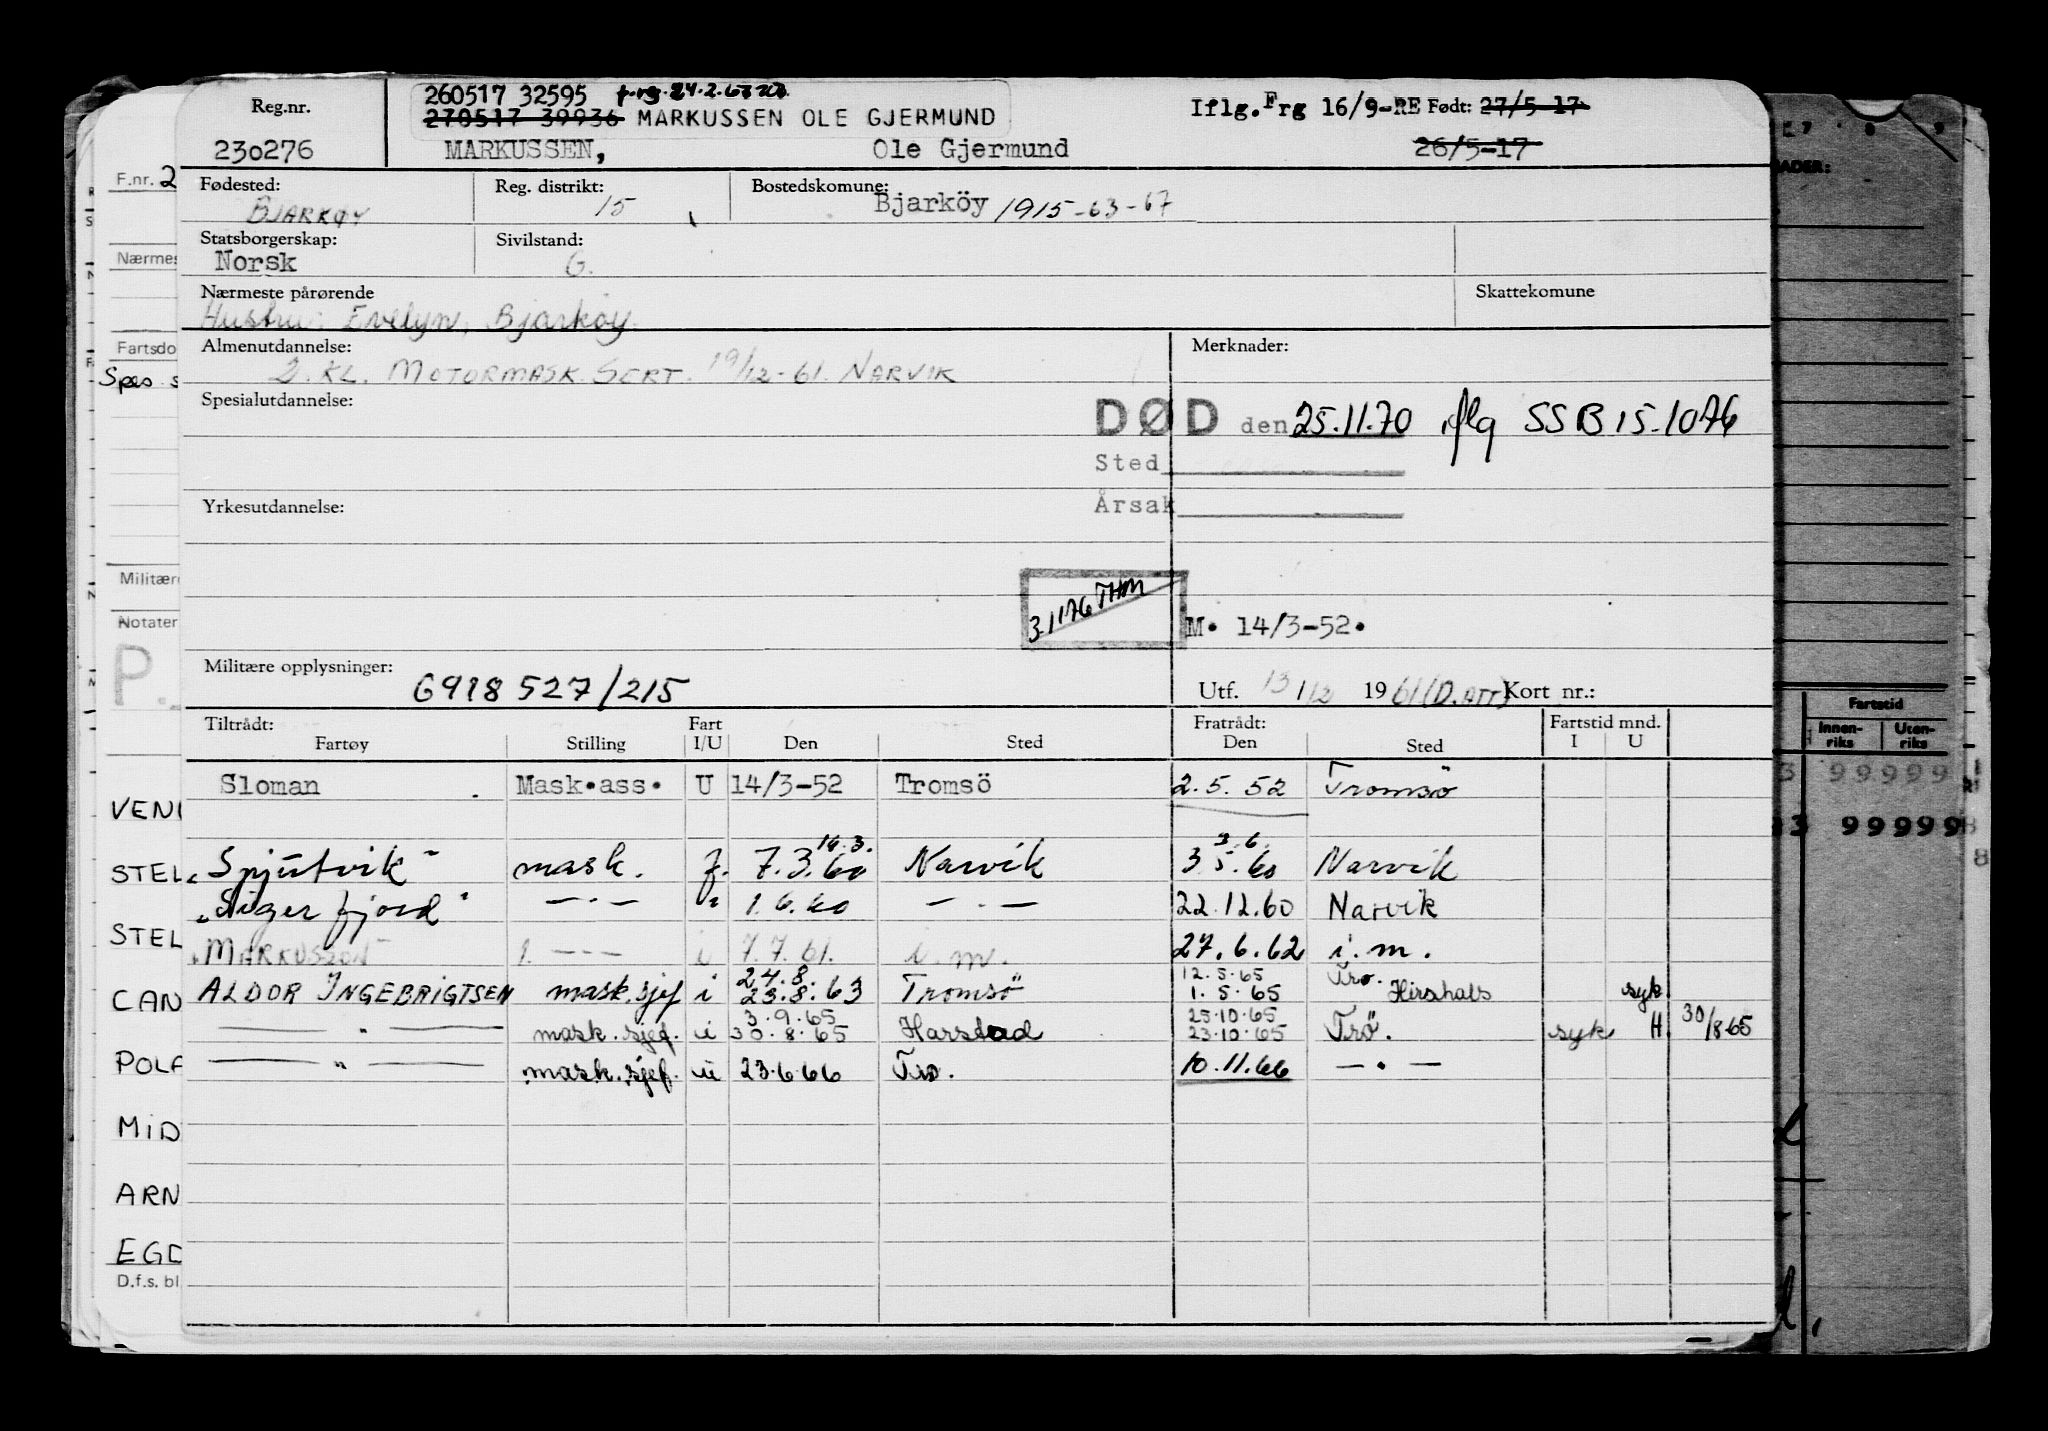 Reg.nr.
230276
260517 32595
270517 39936 MARKUSSEN OLE GJERMUND
MARKUSSEN, Ole Gjermund
Iflg. Frg 16/9-RE Født: 27/5-17
26/5-17
Fødested: BJARKØY
Reg. distrikt: 15
Bostedskomune: Bjarköy 1915-63-67
Statsborgerskap: Norsk
Sivilstand: G.
Nærmeste pårørende
Hustru: Evelyn, Bjarkøy.
Skattekomune
Almenutdannelse:
2. KL. MOTORMASK. SERT. 19/12-61. NARVIK
Merknader:
Spesialutdannelse:
DØD den 25.11.70 iflg SSB 15-1076
Sted
Årsak
Yrkesutdannelse:
3-1176 THM
M. 14/3-52.
Militære opplysninger: 6918527/215
Utf. 13/12 1961 (D.ATT) Kort nr.:
Tiltrådt: Fart Fratrådt: Fartstid mnd.
Fartøy Stilling I/U Den Sted Den Sted I U
Sloman Mask.ass. U 14/3-52 Tromsö 2.5.52 Tromsö
14.3. 3.6.
"Spjutvik" mask. f. 7.3.60 Narvik 3 5.60 Narvik
"Sigerfjord" — . — " 1.6.60 — . — 22.12.60 Narvik
"MARKUSSON" 1. — - — i 7.7.61. i.m. 27.6.62 i.m.
24.8. 12.5.65 Tro.
ALDOR INGEBRIGTSEN mask.sjef i 23.8.63 Tromsö 1.5.65 Hirshals syk
3.9.65 25.10.65
— " — mask.sjef. u 30.8.65 Harstad 23.10.65 Trö. syk H 30/8-65
— " — mask.sjef. u 23.6.66 Tro. 10.11.66 — . —
F.nr. 2
Nærmes
Fartsdo
Spes. s
Militære
Notater
P.
VEN
STEL
STEL
CAN
POLA
MID
ARN
EGD
D.f.s. bl
Fartstid
Innen-
riks
Uten-
riks
3 99999
3 99999